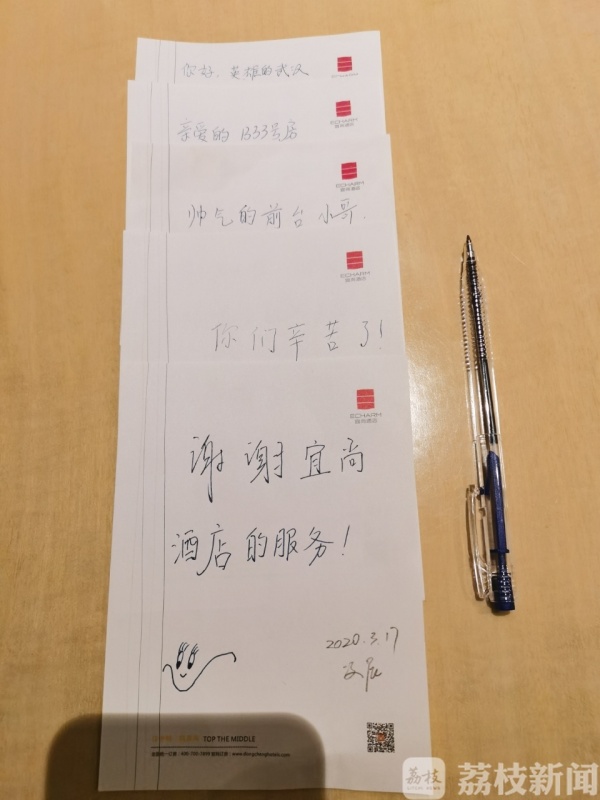 你好,英雄的武汉
亲爱的1333号房
ECHARM
帅气的前台小哥.
ECHARM
你们辛苦了!
ECHARM
宜尚酒店
谢谢宜尚
酒店的服务!
2020.3.17
TOP THE MIDDLE
荔枝
荔枝新闻